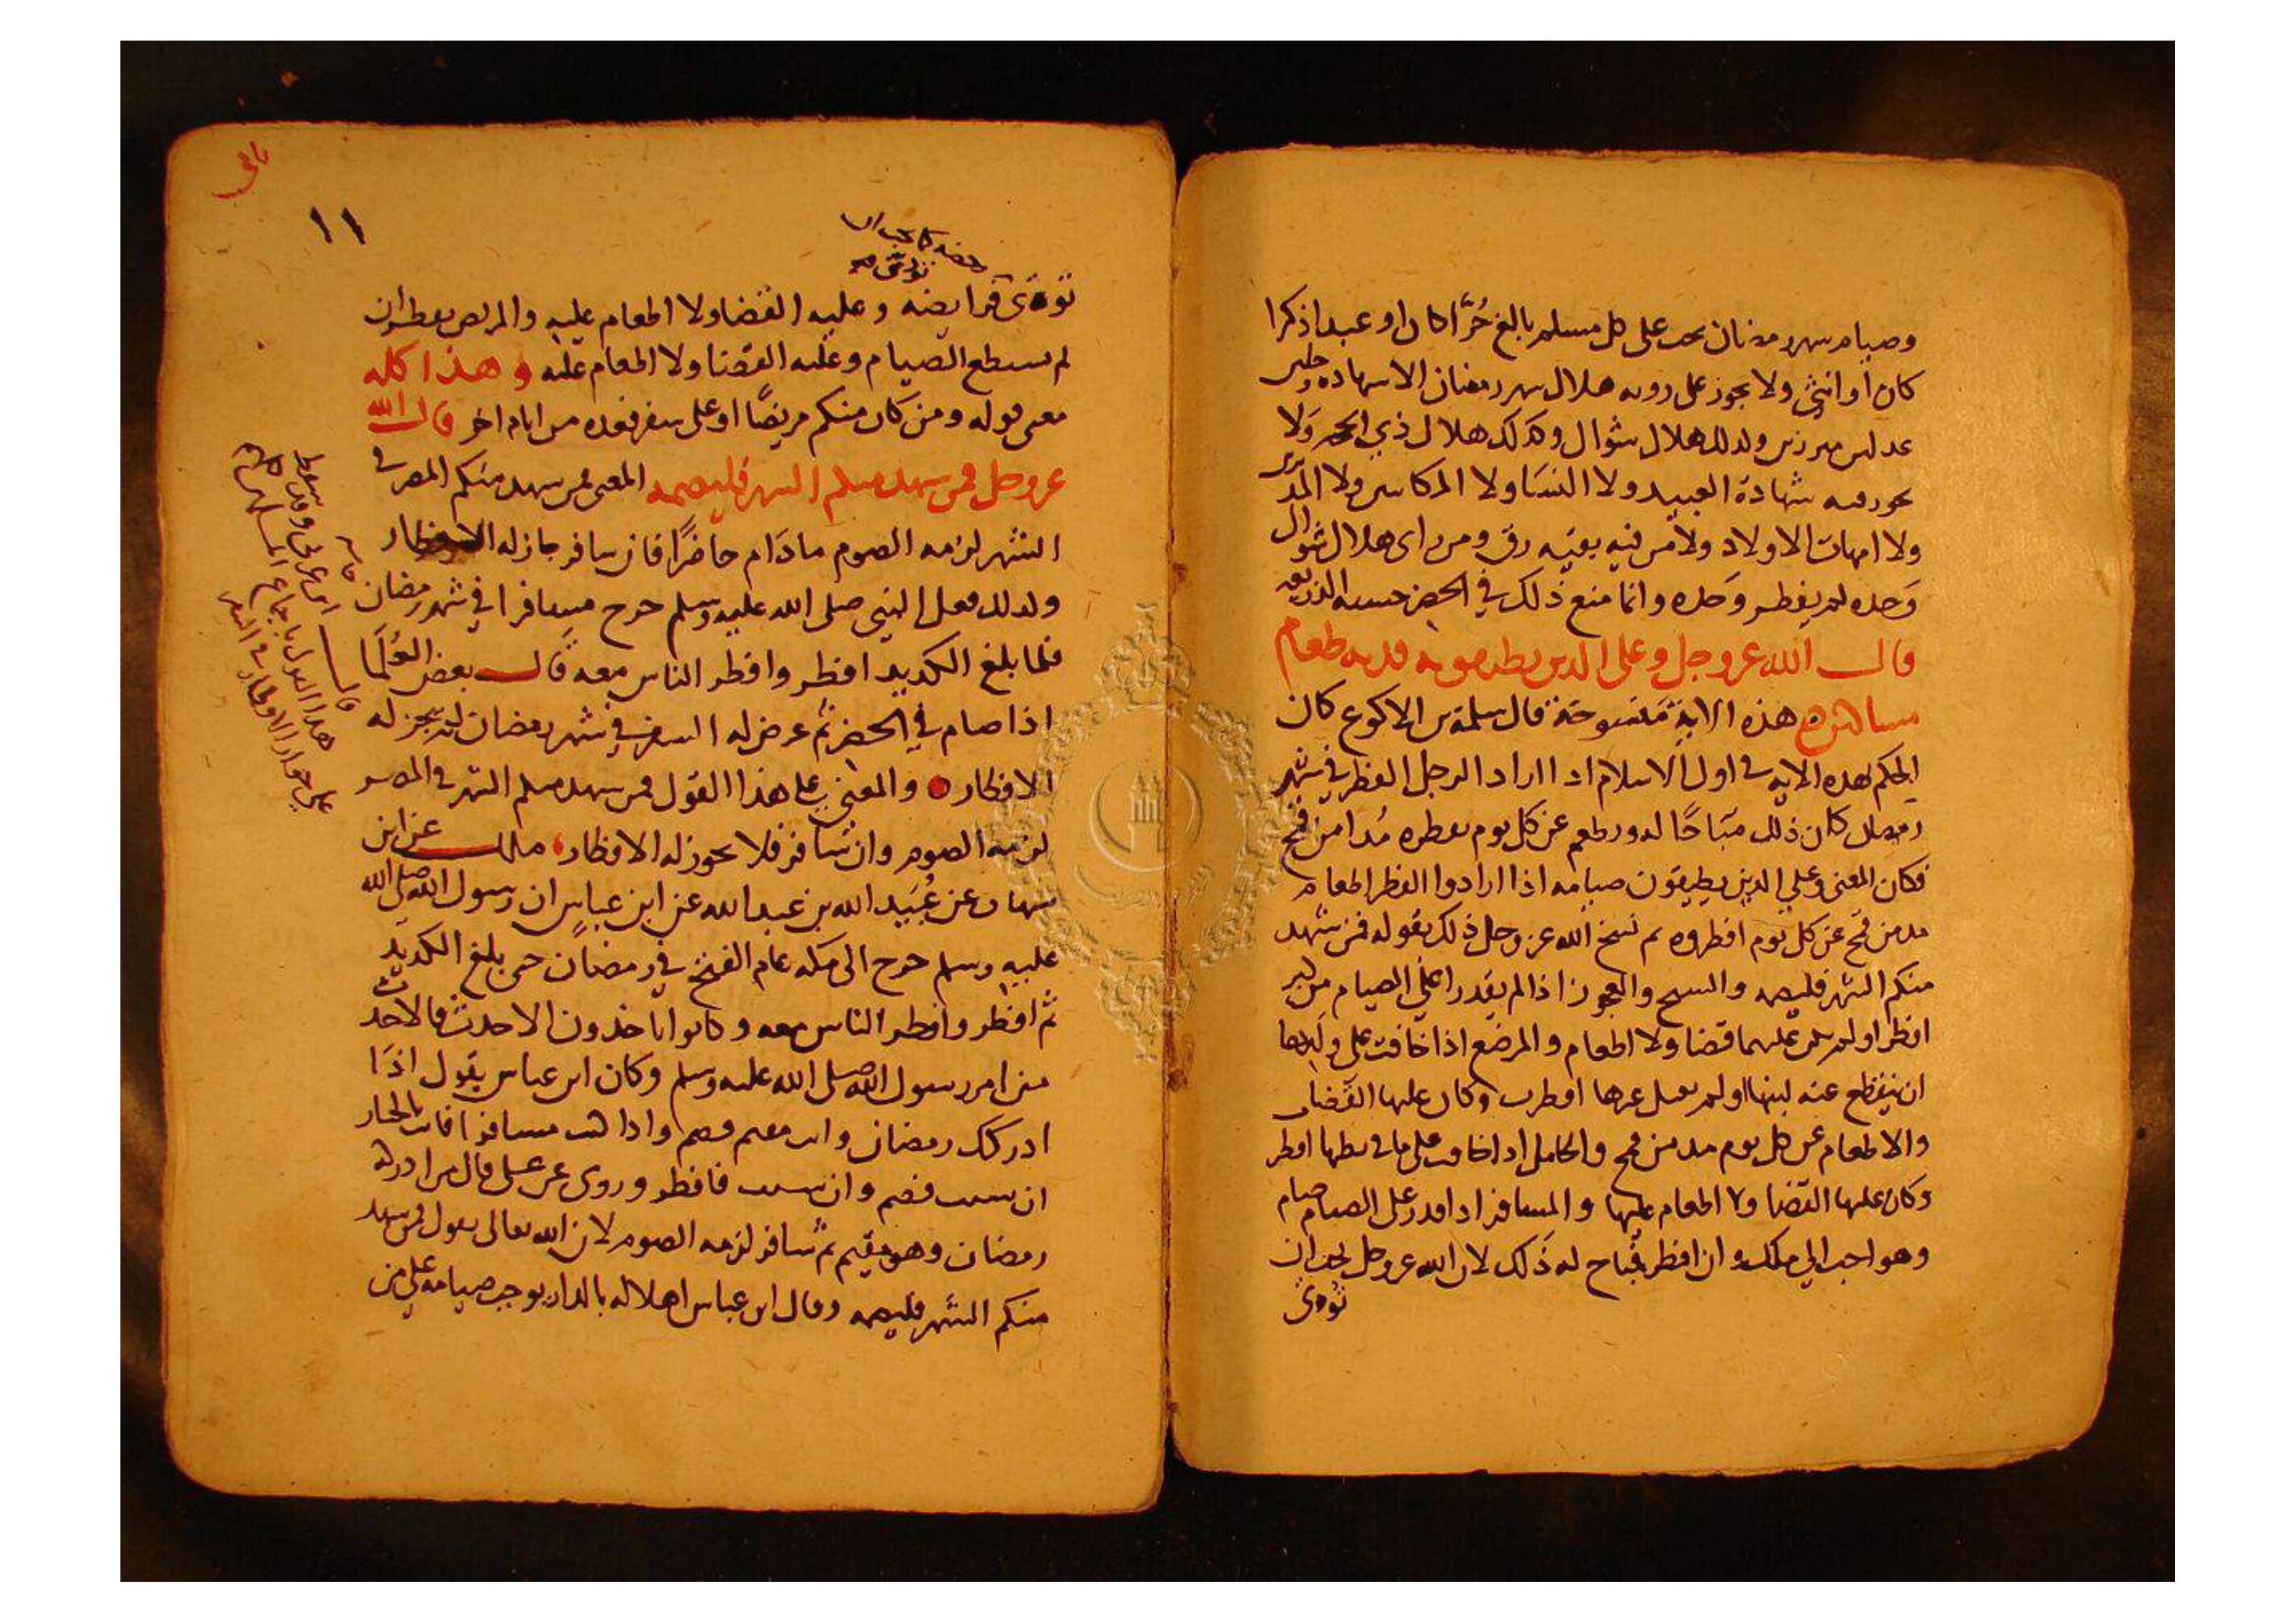 وصيام شهر رمضان يجب على كل مسلم بالغ حُرًّا كان او عبدا ذكرا
كان أو انثى ولا يجوز على رويه هلال شهر رمضان الا شهاده رجلين
عدلين وكذلك هلال شوال وكذلك هلال ذي الحجه ولا
يجوز فيه شهادة العبيد ولا النسَا ولا المكاتبين ولا المدبرين
ولا امهات الاولاد ولا من فيه بقيه رق ومن راى هلال شوال
وَحده لم يفطر وَحده وانما منع ذلك في الحضر خشيه الذريعه
قال الله عز وجل وعلى الذين يطيقونه فديه طعام
مساكين هذه الاية مَنسوخة قال سلمة بن الاكوع كان
الحكم بهذه الايه في اول الاسلام اذا اراد الرجل الفطر في شهر
رمضان كان ذلك مبَاحًا له ويطعم عن كل يوم يفطره مُدا من قمح
فكان المعنى وعلى الذين يطيقون صيامه اذا ارادوا الفطر اطعام
مد من قمح عن كل يوم افطروه ثم نسخ الله عز وجل ذلك بقوله فمن شهد
منكم الشهر فليصمه والشيخ والعجوز اذا لم يقدرا على الصيام من كبر
افطرا ولم يكن عليهما قضا ولا اطعام والمرضع اذا خافت على ولدها
ان ينقطع عنه لبنها ولم يقبل غيرها افطرت وكان عليها القضا
والاطعام عن كل يوم مد من قمح والحامل اذا خافت على ما في بطنها افطرت
وكان عليها القضا ولا اطعام عليها والمسافر اذا قدر على الصيام صام
وهو احب الي ملك وان افطر فمباح له ذَلك لان الله عز وجل يحب ان
تؤتى
١١
تؤتى فرايضه وعليه القضا ولا اطعام عليه والمريض يفطر ان
لم يستطع الصيام وعليه القضا ولا اطعام عليه وهذا كله
معنى قوله ومن كان منكم مريضًا او على سفر فعده من ايام اخر قال الله
عز وجل فمن شهد منكم الشهر فليصمه المعنى فمن شهد منكم المصر في
الشهر لزمه الصوم مادَام حاضرًا فان سافر جاز له الافطار
وكذلك فعل النبي صلى الله عليه وسلم خرج مسافرا في شهر رمضان
فلما بلغ الكديد افطر وافطر الناس معه قال بعض العُلمَا
اذا صام في الحضر ثم عرض له السفر في شهر رمضان لم يجز له
الافطار والمعنى على هذا القول فمن شهد منكم الشهر في المصر
لزمه الصوم وان سَافر فلا يجوز له الافطار، ملك عن ابن
شهاب عن عُبَيد الله بن عبد الله عن ابن عباس ان رسول الله صلى الله
عليه وسلم خرج الى مكه عام الفتح في رمضان حتى بلغ الكديد
ثم افطر وافطر الناس معه وكانوا ياخذون الاحدث فالاحدث
من امر رسول الله صلى الله عليه وسلم وكان ابن عباس يقول اذَا
ادركك رمضان وانت مقيم فصم واذا كنت مسافرا فانت بالخيار
ان شيت فصم وان شيت فافطر وروى عن على قال من ادركه
رمضان وهو مقيم ثم سَافر لزمه الصوم لان الله تعالى يقول فمن شهد
منكم الشهر فليصمه وقال ابن عباس اهلاله بالدار يوجب صيامه على من
قال
ابن عربى وقد سقط
هذا القول باجماع المسلمين كلهم
على جواز الافطار في السفر